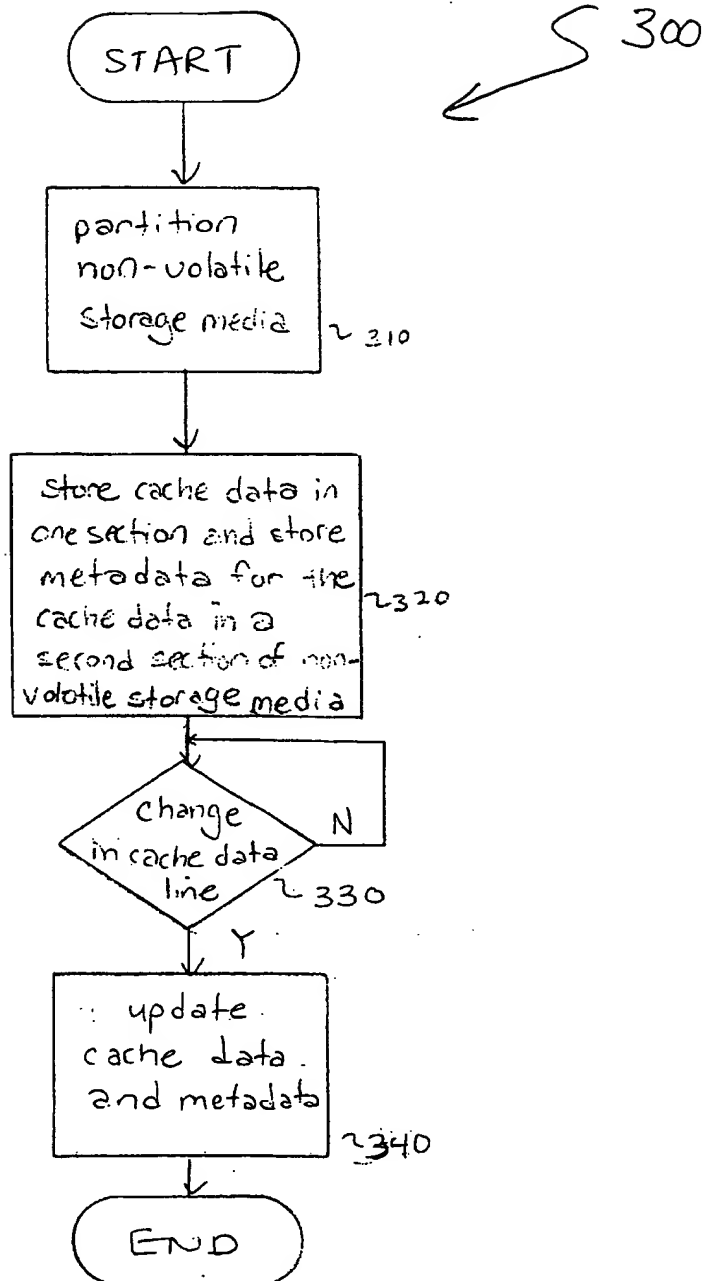 300
START
partition
non-volatile
storage media
310
store cache data in
one section and store
metadata for the
cache data in a
second section of non-
volatile storage media
320
change
in cache data
line
N
330
Y
update
cache data
and metadata
340
END